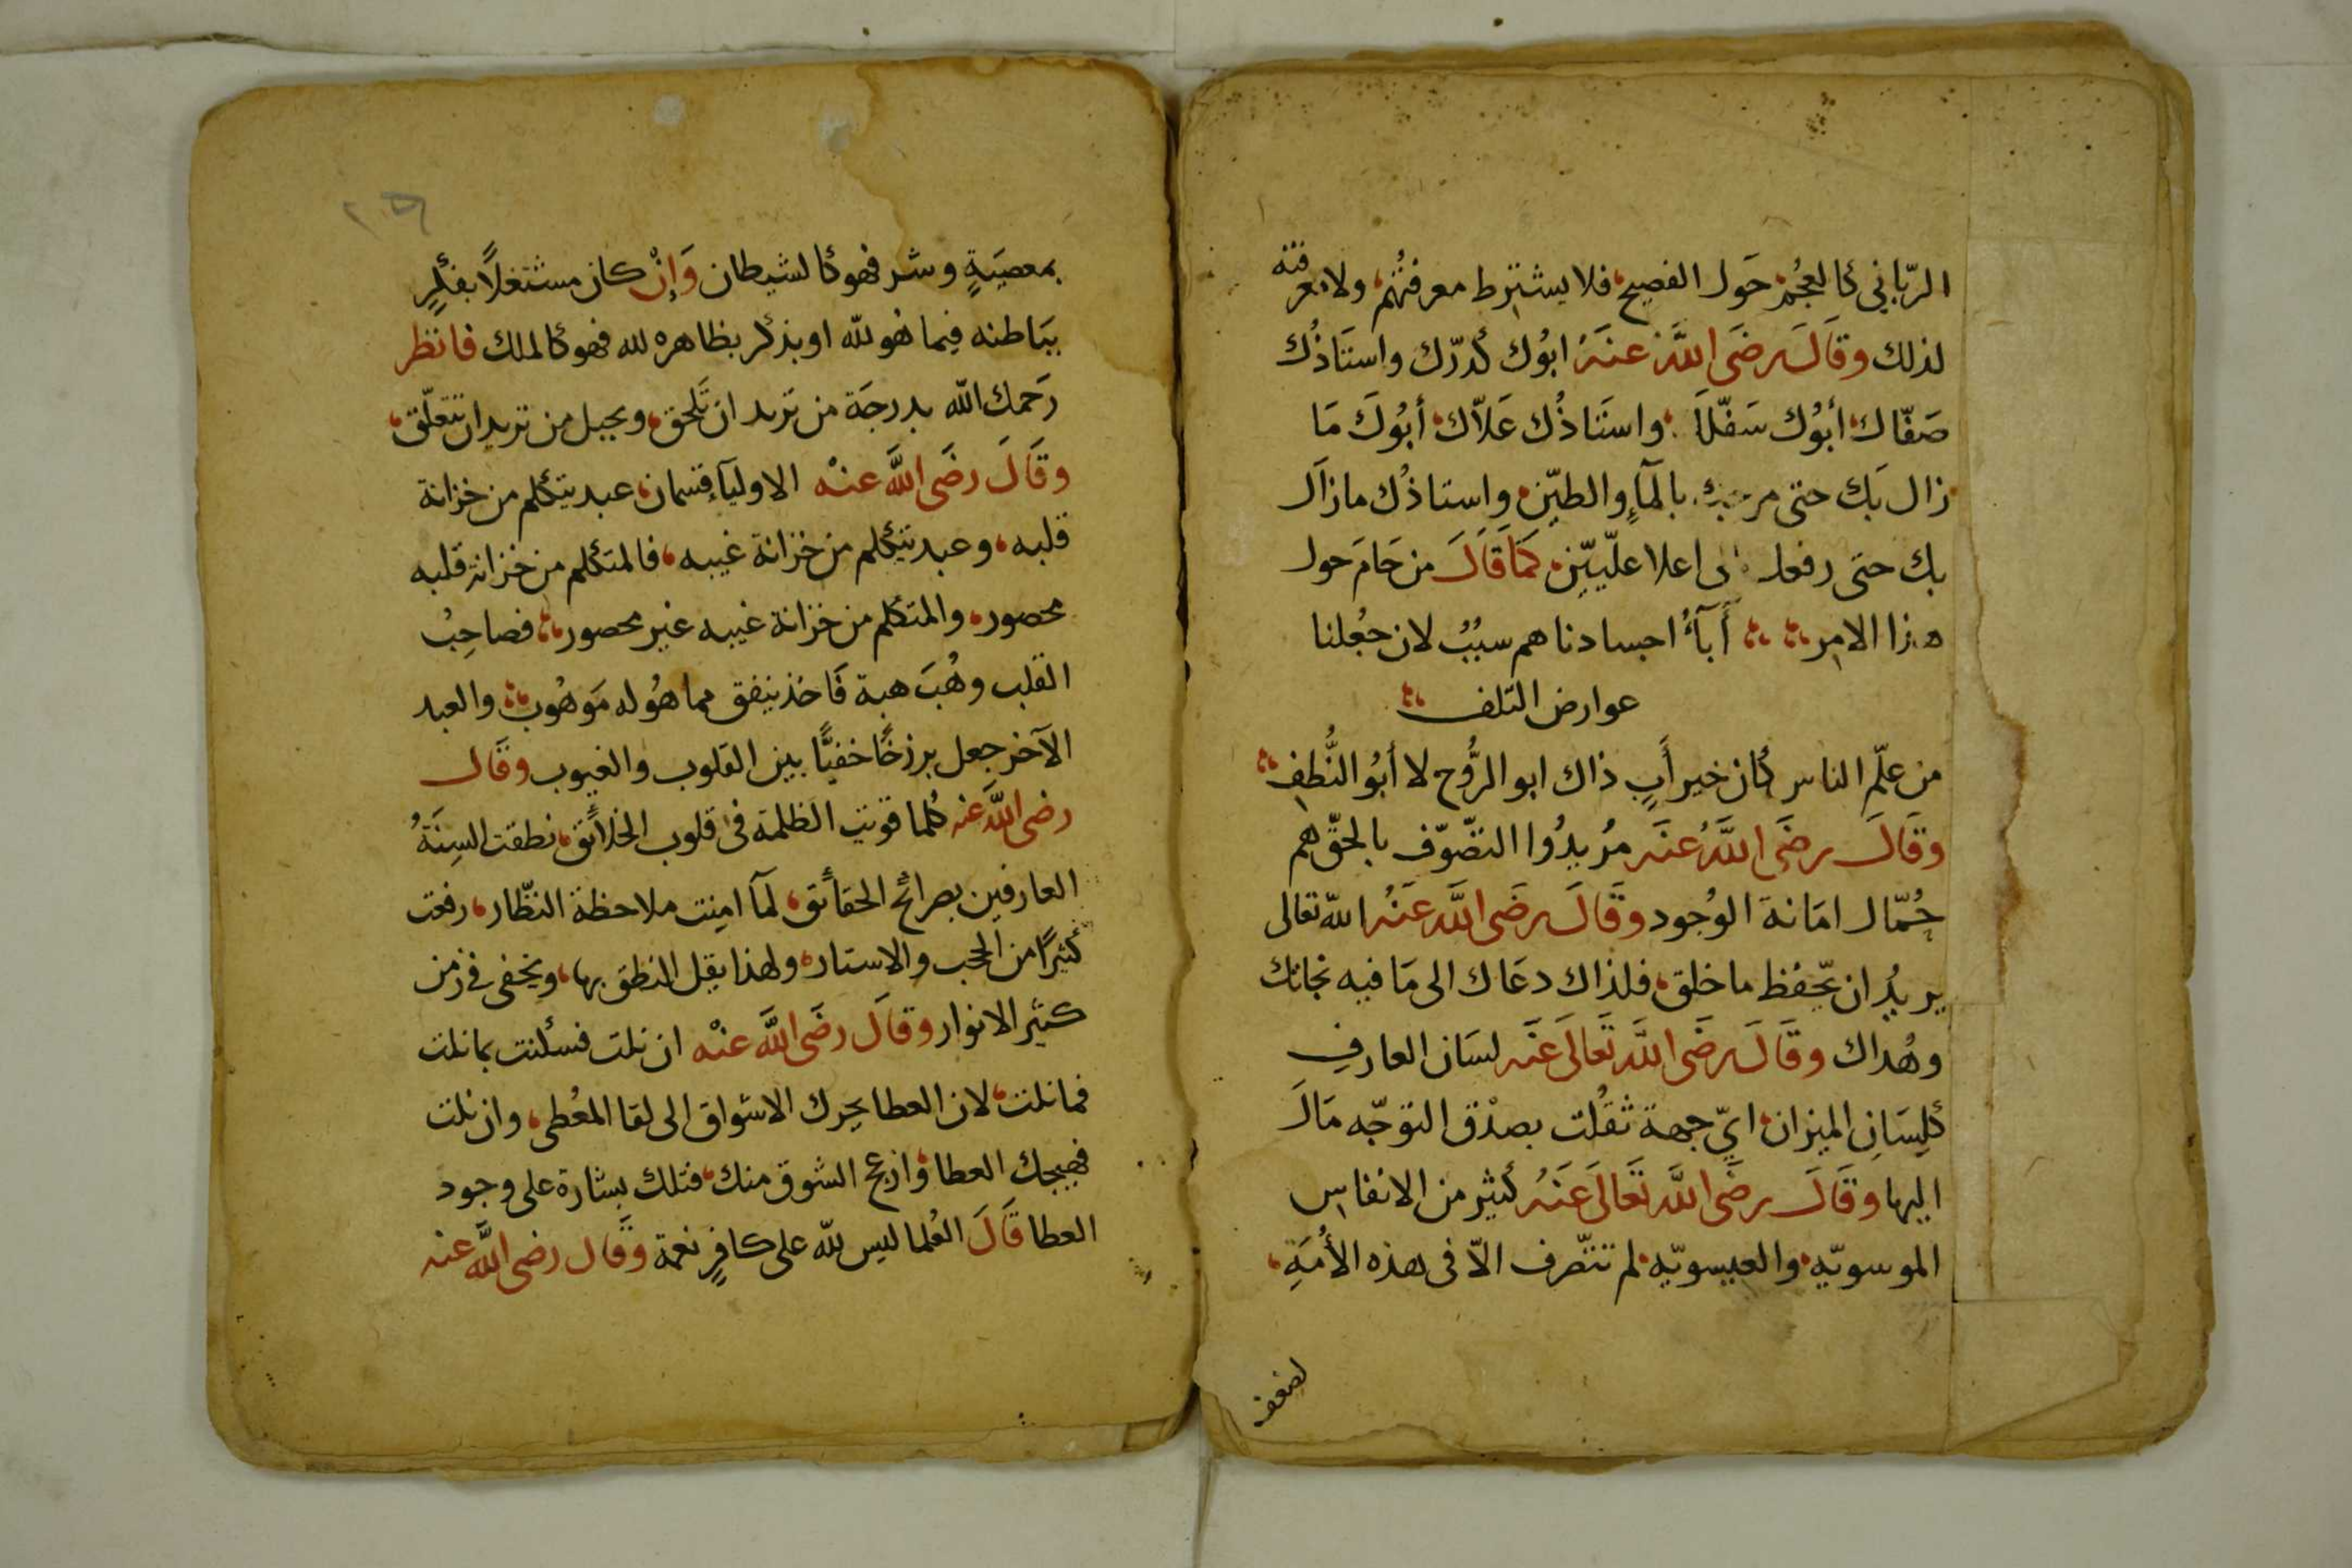 الرّباني كالعُجْم حَول الفصيح فلا يشترط معرفتُهم ولا معرفته
لذلك وقَالَ رضَى اللَّه عنهُ ابوُك كدرّك واستَاذُك
صَفّاك أبوُك سَفّلكَ واستَاذُك عَلاّك أبوُكَ مَا
زال بَك حتى مرجك بالمآءِ والطيّن واستاذُك مازاَل
بك حتى رفعك الى اعلا علّييّن كمَا قَالَ من حَامَ حول
هذا الامر أَبآءُ اجسادنا هم سبُبُ لان جعُلنا
عوارض التلف
من علّم الناس كان خير أبٍ ذاك ابو الرُّوح لا أبوُ النُّطف
وقَالَ رضَى اللَّهُ عنَه مُريدُوا التصّوّف بالحقّ هم
حُمّال امَانهَ الوُجود وقَالَ رضَى اللَّه عنَهُ اللّه تعالى
يريدُ ان يحّفظ ما خلق فلذاك دعَاك الى مَا فيه نجاتك
وهُداك وقَالَ رضَى اللَّه تَعَالَى عنَه لسَان العارف
كلِسَانِ الميزان ايّ جهة ثقُلت بصدْق التوجّه مَالَ
اليها وقَالَ رضَى اللَّه تَعَالَى عَنهُ كثير من الانفاس
الموسويّه والعيسويّه لم تتصّرف الاّ فى هذه الأمُةِ
لضعف
بمعصيَةٍ وشر فهو كالشيطان وَإِنْ كان مشتغلاً بفكرٍ
ببَاطنه فيما هُو للّه او بذكر بظاهره لله فهو كالملك فانظر
رَحمك اللّه بدرجَة من تريد ان تَلحق وبحبل من تريد ان تتعلّق
وقَالَ رضَى اللَّه عنْه الاوليآء قسمان عبد يتكلم من خزانة
قلبه وعبد يتكلم من خزانة غيبه فالمتكلم من خزانة قلبه
محصور والمتكلم من خزانة غيبه غير محصور فصاحِبُ
القلب وهُبَ هبة فَاخذ ينفق مما هُو له مَوهُوب والعبد
الآخر جعل برزخًا خفيًّا بين القلوب والغيوب وقَال
رضى اللَّه عنه كُلما قويت الظلمة فى قلوب الخلائق نطقت السِنَةُ
العارفين بصرائح الحقائق لمآ امِنت ملاحظة النظّار رفعت
كثيرًا من الحجب والاستار ولهذا يقل النطق بها ويخفى فى زمن
كثير الانوار وقالَ رضَى اللَّه عنْه ان نلت فسكنت بما نلت
فما نلت لان العطا يحرك الاشواق الى لقا المعُطى وان نلت
فهيجك العطا وازعج الشوق منك فتلك بشارة على وجود
العطا قَالَ العُلما ليس للّه على كافرٍ نعمة وقَال رضى اللَّه عنه